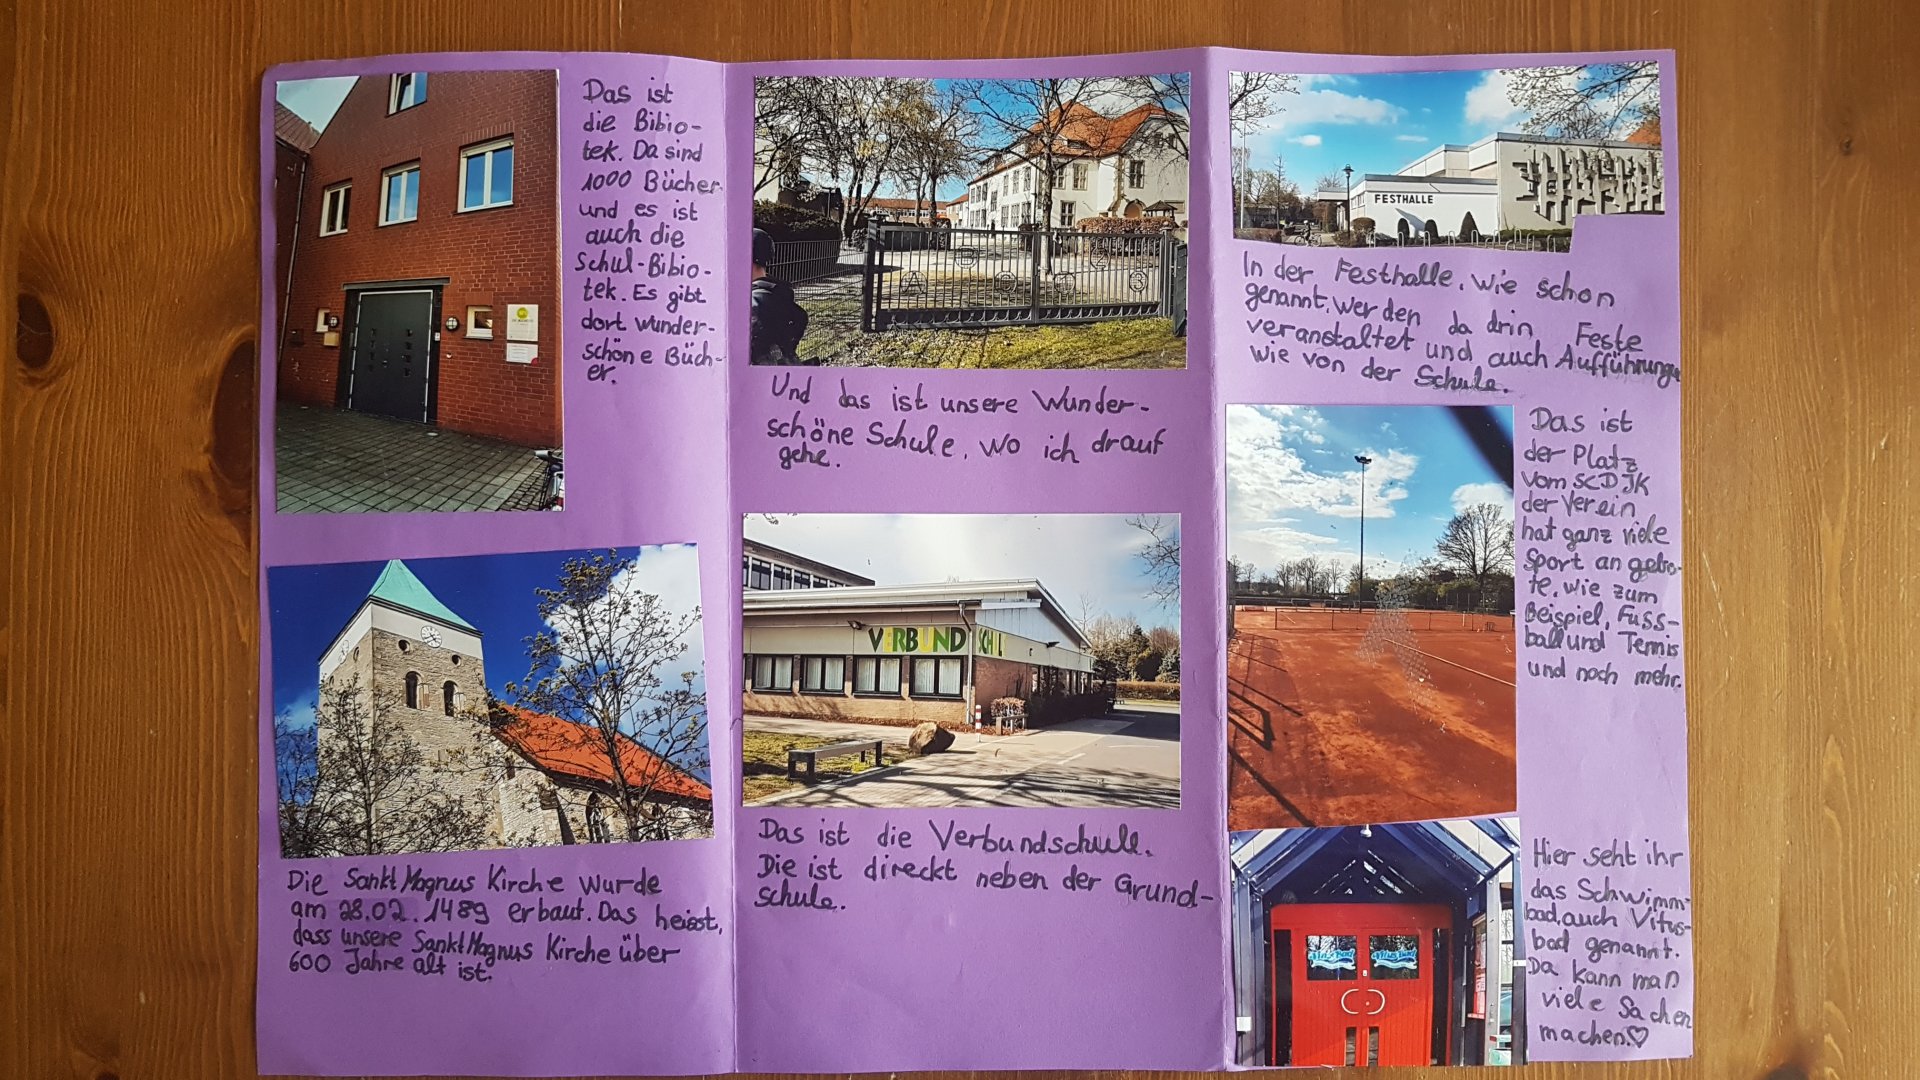 Das ist
die Bibio-
tek. Da sind
1000 Bücher
und es ist
auch die
Schul-Bibio-
tek. Es gibt
dort wunder-
schöne Büch-
er.
Die Sankt Magnus Kirche wurde
am 28.02.1489 erbaut. Das heisst,
dass unsere Sankt Magnus Kirche über
600 Jahre alt ist.
Und das ist unsere Wunder-
schöne Schule, wo ich drauf
gehe.
VERBUNDSCHUL
Das ist die Verbundschule.
Die ist direckt neben der Grund-
schule.
FESTHALLE
In der Festhalle, wie schon
genannt, werden da drin Feste
veranstaltet und auch Aufführungen
wie von der Schule.
Das ist
der Platz
vom SCDJK
der Verein
hat ganz viele
Sport angebo-
te, wie zum
Beispiel, Fuss-
ball und Tennis
und noch mehr.
Hier seht ihr
das Schwimm-
bad, auch Vitus-
bad genannt.
Da kann man
viele Sachen
machen♡